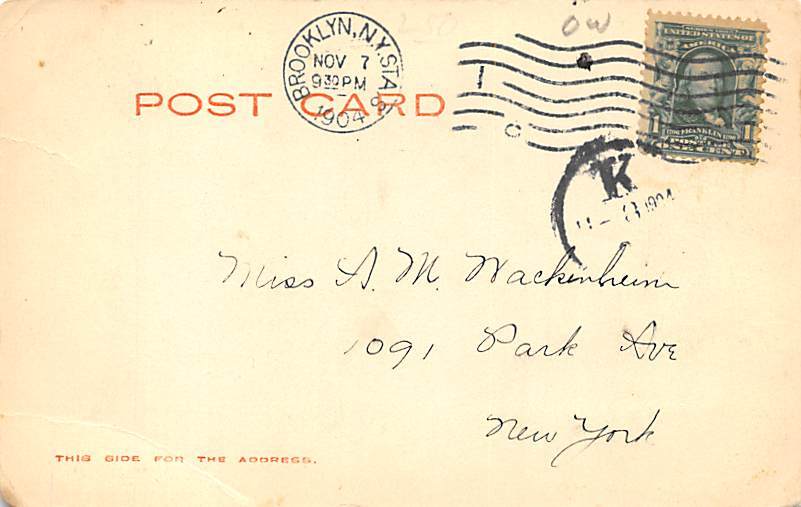 OW
BROOKLYN, N.Y. STA.
NOV 7
9 30 PM
1904
POST CARD
1
C
UNITED STATES OF
AMERICA
FRANKLIN
1 POSTAGE 1
ONE CENT
K
11 - 8 1904
Miss A. M. Wackenheim
1091 Park Ave
New York
THIS SIDE FOR THE ADDRESS.